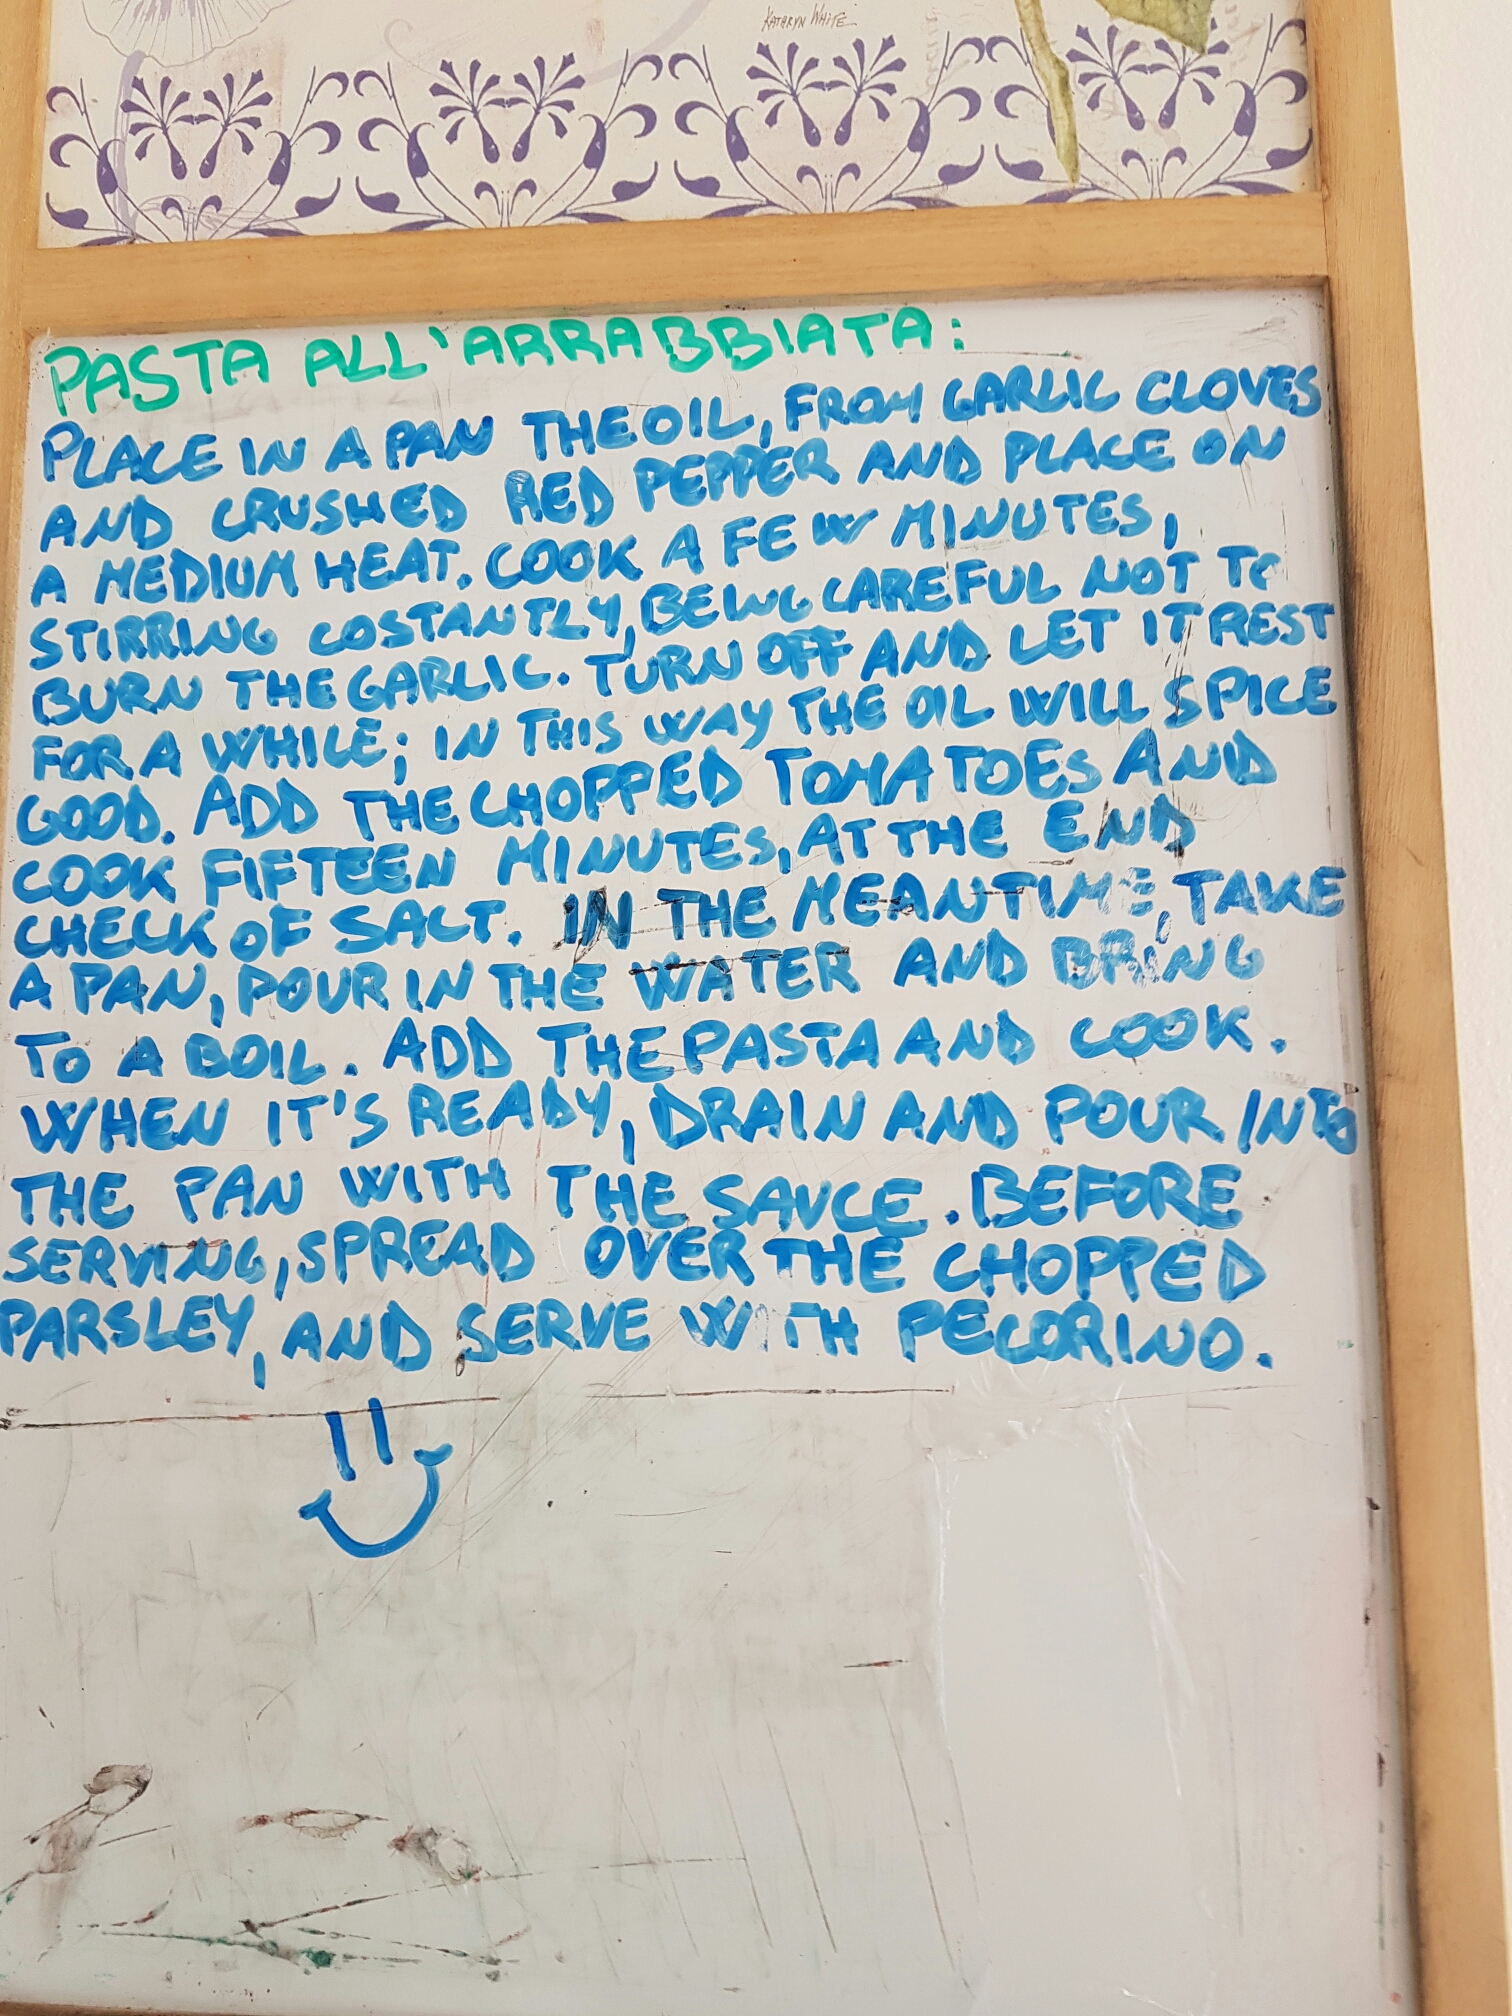 KATHRYN WHITE
PASTA ALL'ARRABBIATA:
PLACE IN A PAN THE OIL, FROM GARLIC CLOVES
AND CRUSHED RED PEPPER AND PLACE ON
A MEDIUM HEAT. COOK A FEW MINUTES,
STIRRING COSTANTLY, BEING CAREFUL NOT TO
BURN THE GARLIC. TURN OFF AND LET IT REST
FOR A WHILE; IN THIS WAY THE OIL WILL SPICE
GOOD. ADD THE CHOPPED TOMATOES AND
COOK FIFTEEN MINUTES, AT THE END
CHECK OF SALT. IN THE MEANTIME, TAKE
A PAN, POUR IN THE WATER AND BRING
TO A BOIL. ADD THE PASTA AND COOK.
WHEN IT'S READY, DRAIN AND POUR INTO
THE PAN WITH THE SAUCE. BEFORE
SERVING, SPREAD OVER THE CHOPPED
PARSLEY, AND SERVE WITH PECORINO.